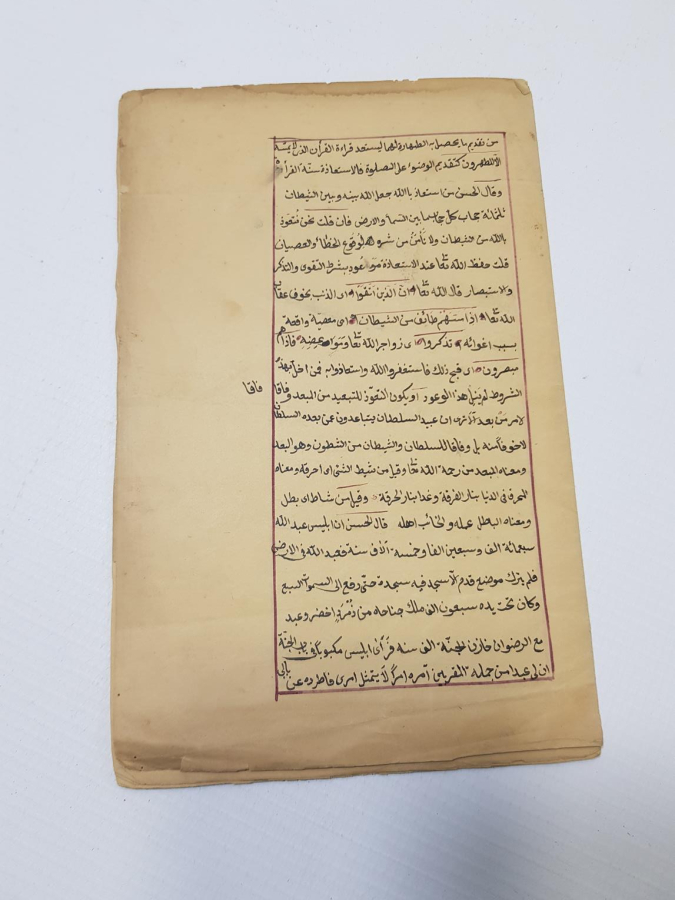 من تقديم ما يحصل به الطهارة لهما ليستعد قراءة القرآن الذى لا يمسّه
الا المطهرون كتقديم الوضوء على الصلوة فالاستعاذة سنّة القرأة
وقال الحسن من استعاذ بالله جعل الله بينه وبين الشيطان
ثلثمائة حجاب كل حجاب ما بين السماء والارض فان قلت نحن نتعوذ
بالله من الشيطان ولا نأمن من شره لوقوع الخطأ والعصيان
قلت حفظ الله تعا عند الاستعاذة موعود بشرط التقوى والتذكر
والاستبصار قال الله تعا ان الذين اتقوا اى الذنب بخوف عقاب
الله تعا اذا مسهم طائف من الشيطان اى معصية واقعة
بسبب اغوائه تذكروا اى زواجر الله تعا ومواعيده فاذا هم
مبصرون اى قبح ذلك فاستغفروا الله واستعاذوا به فمن اخل بهذه
الشروط لم ينل هذا الموعود او يكون التعوذ للتبعيد من المبعد وفاقا
لامر من بعد الا ترى ان عبيد السلطان يتباعدون عمن بعده السلطان
لا خوفا منه بل وفاقا للسلطان والشيطان من الشطون وهو البعد
ومعناه المبعد من رحمة الله تعا وقيل من شيط الشئ اى احرقه ومعناه
المحرق فى الدنيا بنار الفرقة وغدا بنار الحرقة وقيل من شاط اى بطل
ومعناه المبطل عمله والخائب امله قال الحسن ان ابليس عبد الله
سبعمائة الف وسبعين الفا وخمسة آلاف سنة فعبد الله فى الارض
فلم يترك موضع قدم الا سجد فيه سجدة حتى رفع الى السموات السبع
وكان تحت يده سبعون الف ملك جناحاه من زمرد اخضر وعبد
مع الرضوان خازن الجنّة الف سنة فرأى ابليس مكتوبا فى باب الجنّة
ان لى عبدا من جملة المقربين آمره امرا لا يتمثل امرى فاطرده عن بابى
فاقا